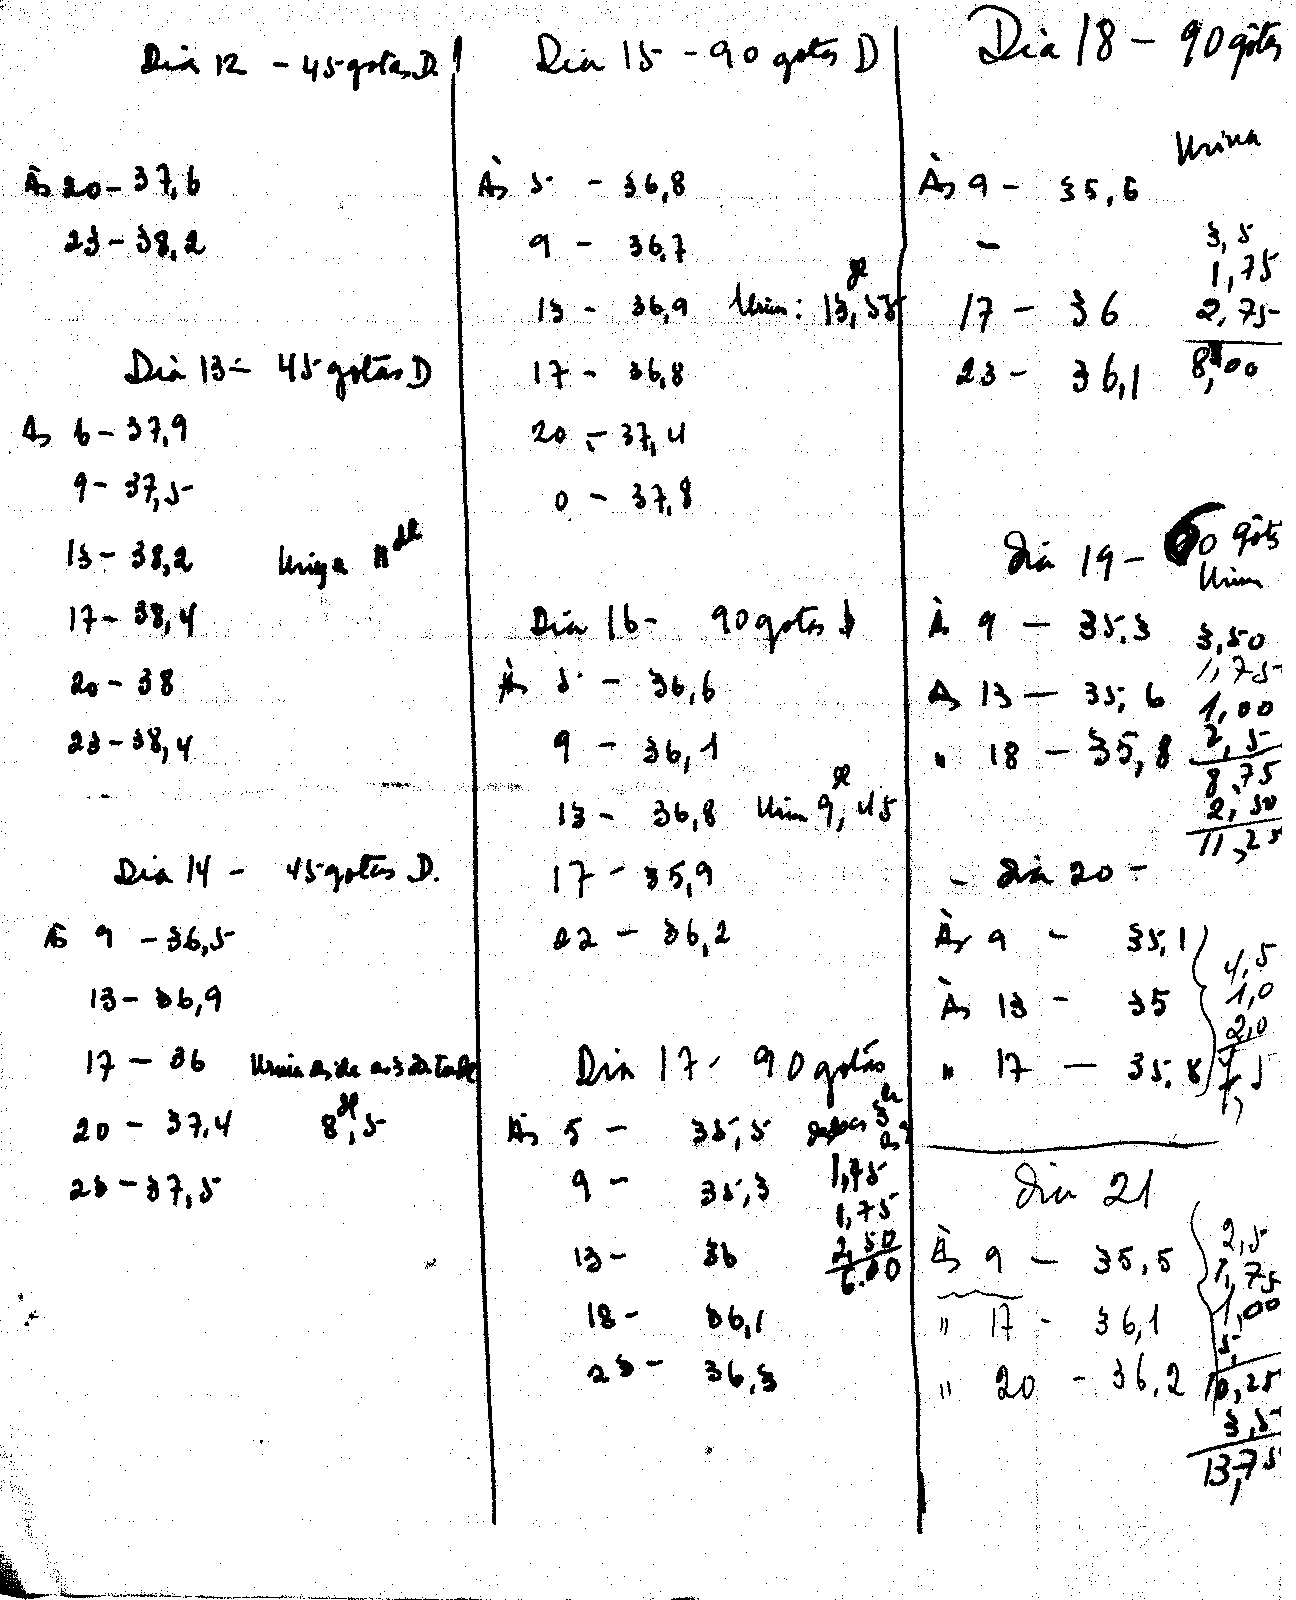 Dia 12 - 45 gotas D.
Às 20 - 37,6
23 - 38,2
Dia 13 - 45 gotas D
Às 6 - 37,9
9 - 37,5
13 - 38,2 Urina 11 dl
17 - 38,4
20 - 38
23 - 38,4
Dia 14 - 45 gotas D.
Às 9 - 36,5
13 - 36,9
17 - 36 Urina
20 - 37,4 8 dl,5
23 - 37,5
Dia 15 - 90 gotas D
Às 5 - 36,8
9 - 36,7
13 - 36,9 Urina: 13,55
17 - 36,8
20 - 37,4
0 - 37,8
Dia 16 - 90 gotas D
Às 5 - 36,6
9 - 36,1
13 - 36,8 Urina 9,45
17 - 35,9
22 - 36,2
Dia 17 - 90 gotas
Às 5 - 35,5
9 - 35,3 1,75
1,75
13 - 36 2,50
6.00
18 - 36,1
23 - 36,3
Dia 18 - 90 gôtas
Urina
Às 9 - 35,6
- 3,5
1,75
17 - 36 2,75
23 - 36,1 8,00
Dia 19 - 60 gôts
Urina
Às 9 - 35,3 3,50
1,75
Às 13 - 35,6 1,00
" 18 - 35,8 2,5
8,75
2,50
11,25
- Dia 20 -
Às 9 - 35,1 4,5
Às 13 - 35 1,0
2,0
" 17 - 35,8 7,5
Dia 21
Às 9 - 35,5 2,5
1,75
" 17 - 36,1 1,00
5,
" 20 - 36,2 10,25
3,5
13,75